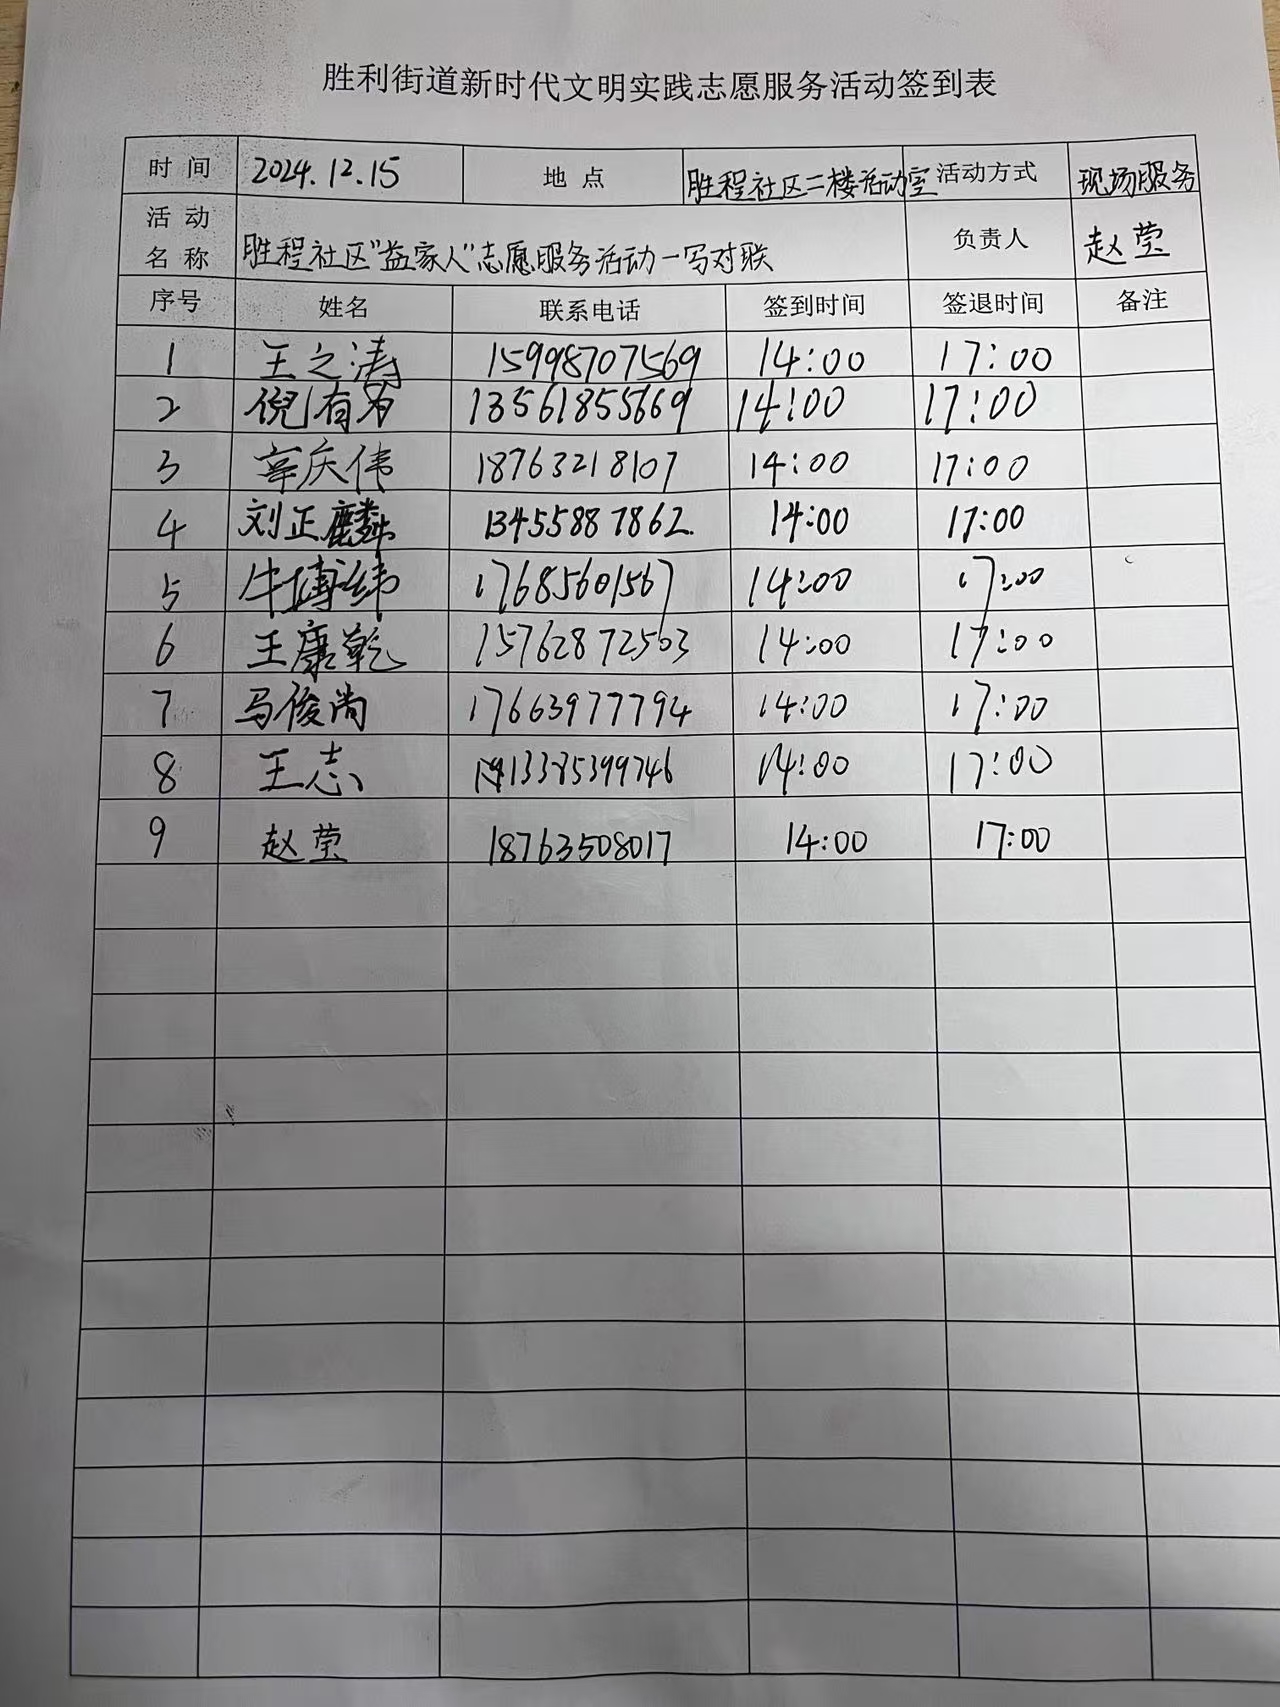 胜利街道新时代文明实践志愿服务活动签到表
时间 2024.12.15 地点 胜程社区二楼活动室 活动方式 现场服务
活动名称 胜程社区"益家人"志愿服务活动—写对联 负责人 赵莹
序号 姓名 联系电话 签到时间 签退时间 备注
1 王之涛 15998707569 14:00 17:00
2 倪有为 13561855669 14:00 17:00
3 辛庆伟 18763218107 14:00 17:00
4 刘正麟 13455887862 14:00 17:00
5 牛博纬 17685601567 14:00 17:00
6 王康乾 15762872503 14:00 17:00
7 马俊尚 17663977794 14:00 17:00
8 王志 13385399746 14:00 17:00
9 赵莹 18763508017 14:00 17:00